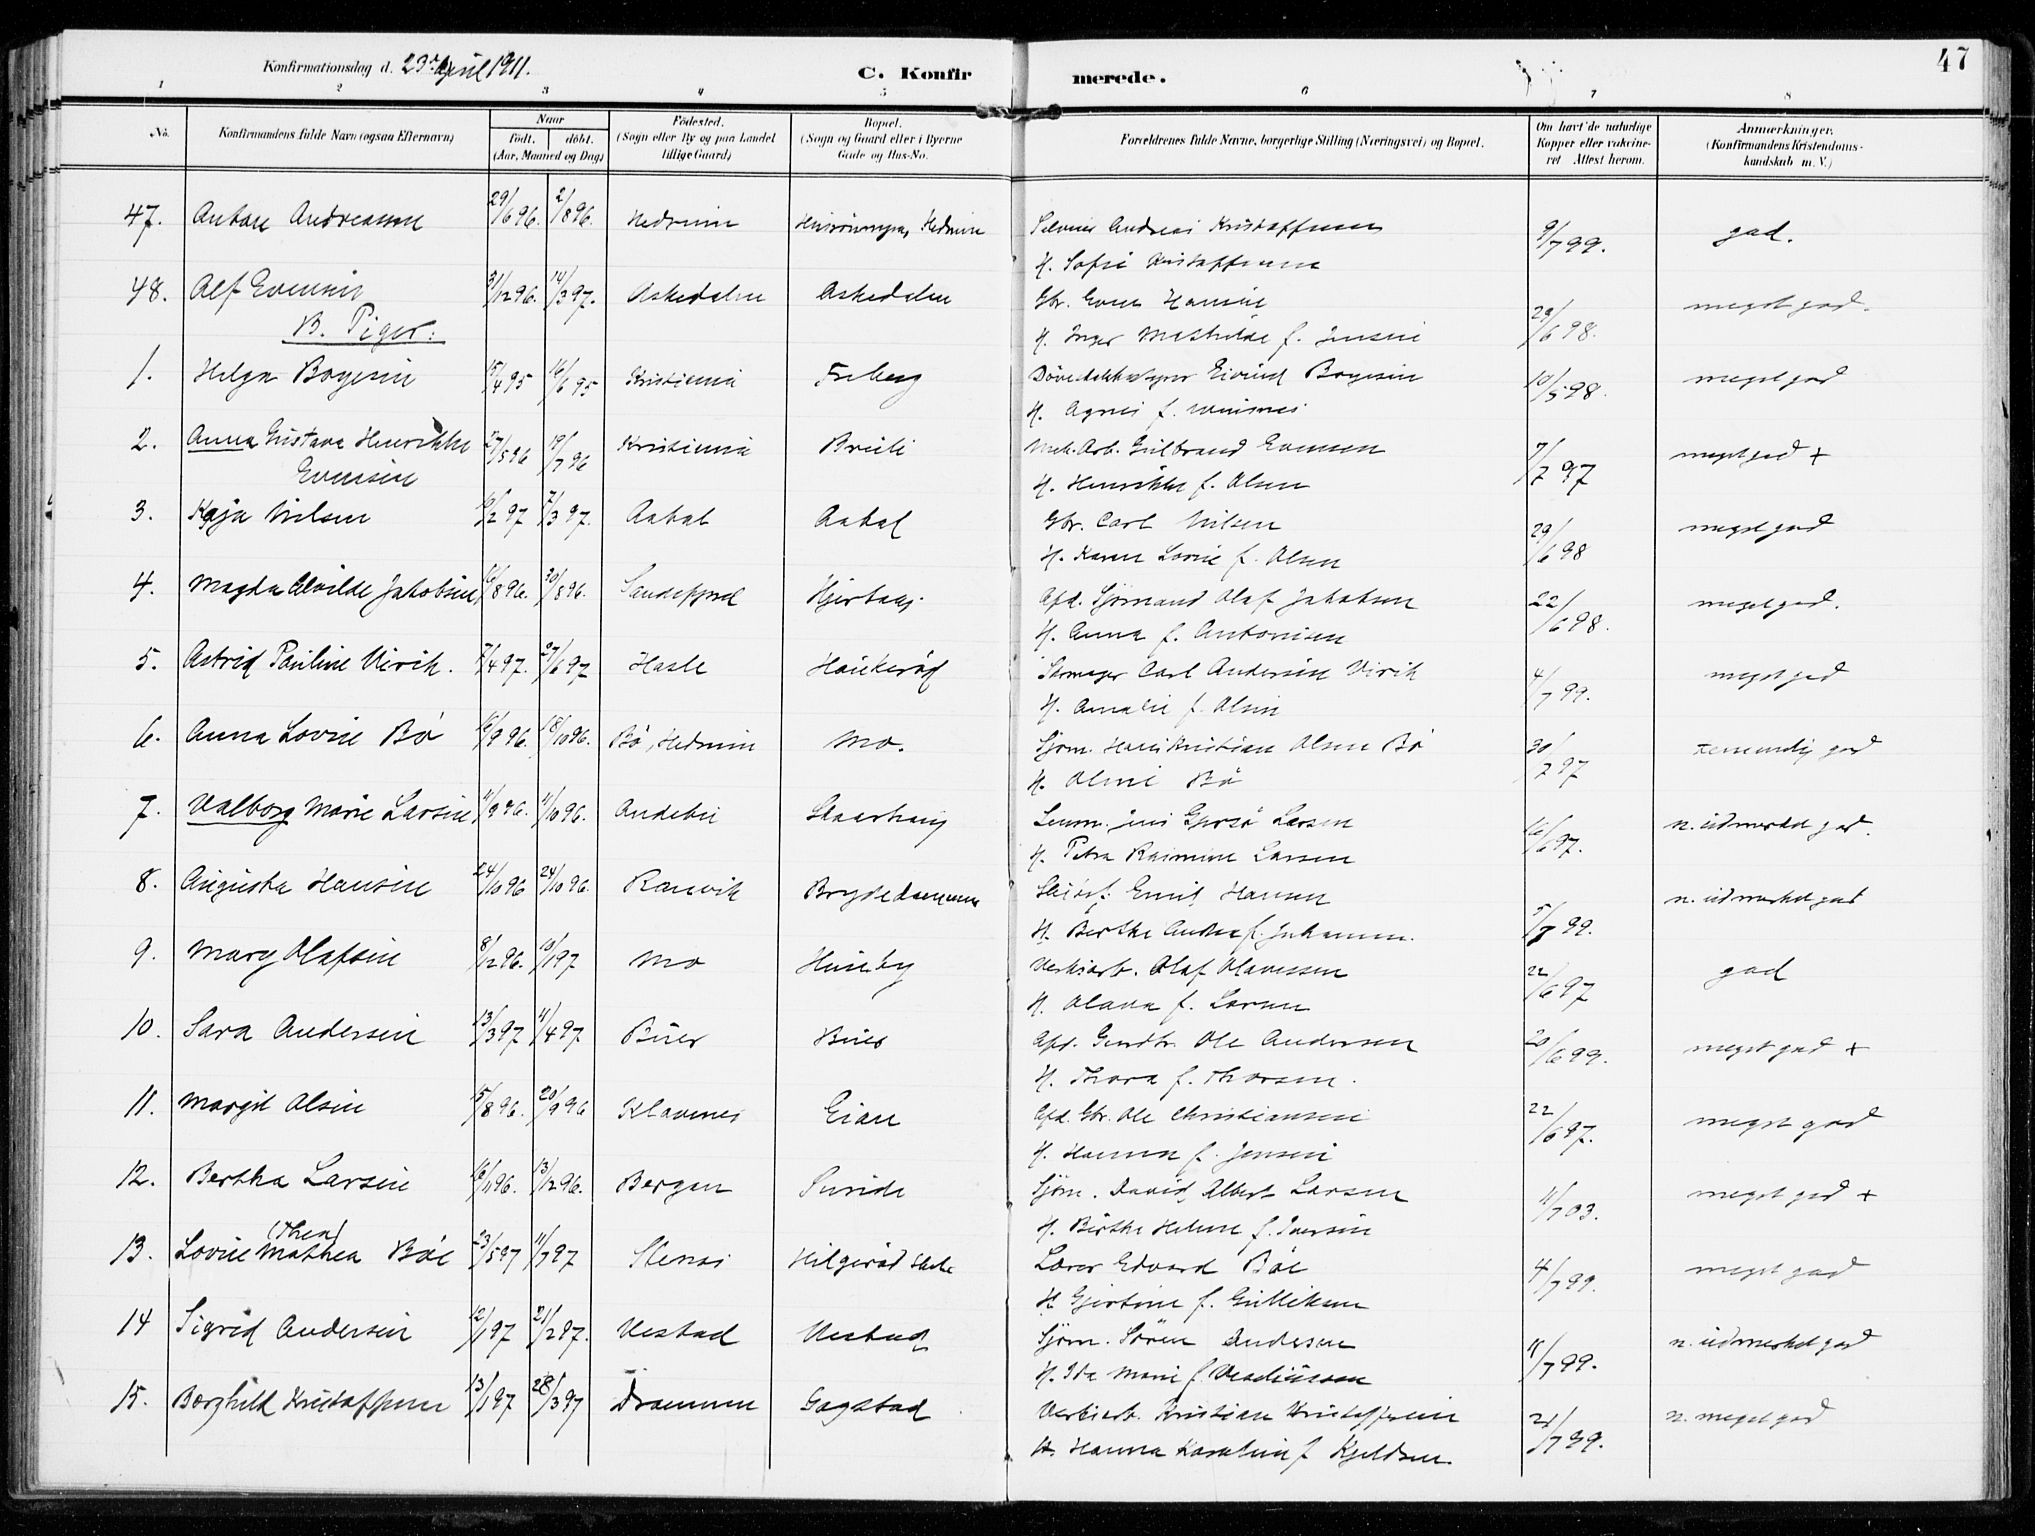 47
Konfirmationsdag d. 23de April 1911.
C. Konfirmerede.
1 2 3 4 5 6 7 8
No. Konfirmandens fulde Navn (ogsaa Efternavn) Naar født. døbt. (Aar, Maaned og Dag) Fødested. (Sogn eller By og paa Landet tillige Gaard) Bopæl. (Sogn og Gaard eller i Byerne Gade og Hus-No. Forældrenes fulde Navne, borgerlige Stilling (Næringsvei) og Bopæl. Om havt de naturlige Kopper eller vakcineret Attest herom. Anmerkninger. (Konfirmandens Kristendomskundskab m. V.)
47. Anton Andreassen 29/6 96. 2/8 96. Hedrum Hedrum Andreas Kristoffersen 9/7 99. god.
H. Sofie Kristoffersen
48. Alf Evensen 3/12 96. 14/3 97. Askedalen Askedalen Gbr. Even Hansen 29/6 98. meget god.
H. Inger Mathilde f. Jensen
B. Piger:
1. Helga Boyesen 15/4 95 16/6 95 Kristiania Freberg Eivind Boyesen 10/5 98. meget god
H. Agnes f.
2. Anna Gustava Henrikke Evensen 27/5 96 19/7 96 Kristiania Breili Mek. Arb. Gulbrand Evensen 7/7 97 meget god +
H. Henrikke f. Olsen
3. Kaja Nilsen 6/2 97 7/3 97. Aabol Aabol Gbr. Carl Nilsen 29/6 98 meget god
H. Karen Lovise f. Olsen
4. Magda Alvilde Jakobsen 16/8 96. 30/8 96. Sandefjord Hjertaas Afd. Sjømand Olaf Jakobsen 22/6 98. meget god.
H. Anna f. Antonisen
5. Astrid Pauline Virik. 7/4 97. 27/6 97 Hasle Haukerød Skomager Carl Andersen Virik 4/7 99. meget god
H. Amalie f. Olsen
6. Anna Lovise Bø 16/9 96. 18/10 96. Bø, Hedrum Mo. Sjøm. Hans Kristian Olsen Bø 30/7 97 temmelig god
H. Oline Bø
7. Valborg Marie Larsen 11/9 96. 11/10 96. Andebu Skaarhaug Lensm. Jens Larsen 16/6 97. n. udmerket god.
H. Petra Larsen
8. Augusta Hansen 24/10 96 24/10 96. Ranvik Brydedammen Emil Hansen 5/7 99. n. udmerket god
H. Berthe Andrea f. Johansen.
9. Mary Olafsen 8/12 96. 10/1 97 Mo Huseby Verksarb. Olaf Olavessen 22/6 97 god
H. Olava f. Larsen
10. Sara Andersen 13/3 97 11/4 97 Buer Buer Afd. Gaardbr. Ole Andersen 20/6 99. meget god +
H. Thora f. Thorsen.
11. Margit Olsen 15/8 96. 20/9 96 Klavenes Eian Afd. Gbr. Ole Christiansen 22/6 97. meget god
H. Hanna f. Jensen
12. Bertha Larsen 16/11 96. 13/12 96. Bergan Sunde Sjøm. David Albert Larsen 11/7 03. meget god +
H. Berthe Helene f. Iversen
13. Lovise Mathea (Thea) Bøe 23/5 97 11/7 97 Stenas Helgerød Lærer Edvard Bøe 4/7 99. meget god
H. Gjertine f. Gulliksen
14 Sigrid Andersen 12/1 97 21/2 97. Vestad Vestad Sjøm. Søren Andersen 11/7 99. n. udmerket god
H. Ida Marie f.
15. Borghild Kristoffersen 13/1 97 28/3 97 Drammen Gogstad Verksarb. Kristian Kristoffersen 21/7 99. n. meget god
H. Hanna Karoline f. Kjeldsen.